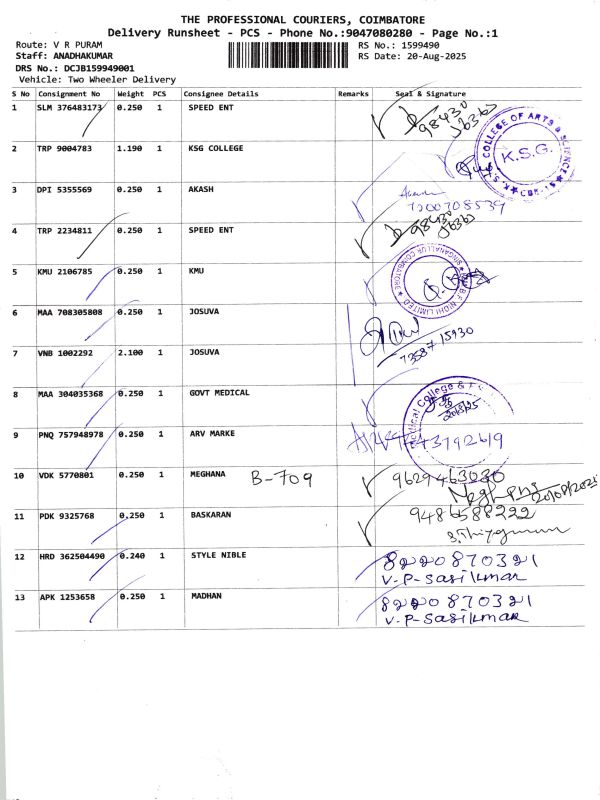 THE PROFESSIONAL COURIERS, COIMBATORE
Delivery Runsheet - PCS - Phone No.:9047080280 - Page No.:1
Route: V R PURAM
Staff: ANADHAKUMAR
DRS No.: DCJB159949001
Vehicle: Two Wheeler Delivery
RS No.: 1599490
RS Date: 20-Aug-2025
S No Consignment No Weight PCS Consignee Details Remarks Seal & Signature
1 SLM 376483173 0.250 1 SPEED ENT 98430
2 TRP 9004783 1.190 1 KSG COLLEGE
K.S.G. COLLEGE OF ARTS & SCIENCE
K.S.G.
3 DPI 5355569 0.250 1 AKASH
4 TRP 2234811 0.250 1 SPEED ENT 98430
5 KMU 2106785 0.250 1 KMU
NIDHI LIMITED SINGANALLUR COIMBATORE
6 MAA 708305808 0.250 1 JOSUVA
7 VNB 1002292 2.100 1 JOSUVA
8 MAA 304035368 0.250 1 GOVT MEDICAL
Medical College &
9 PNQ 757948978 0.250 1 ARV MARKE
10 VDK 5770801 0.250 1 MEGHANA B-709 9629463030
11 PDK 9325768 0.250 1 BASKARAN 9486588222
12 HRD 362504490 0.240 1 STYLE NIBLE 8220870321
V-P-Sasikumar
13 APK 1253658 0.250 1 MADHAN 8220870321
V-P-Sasikumar